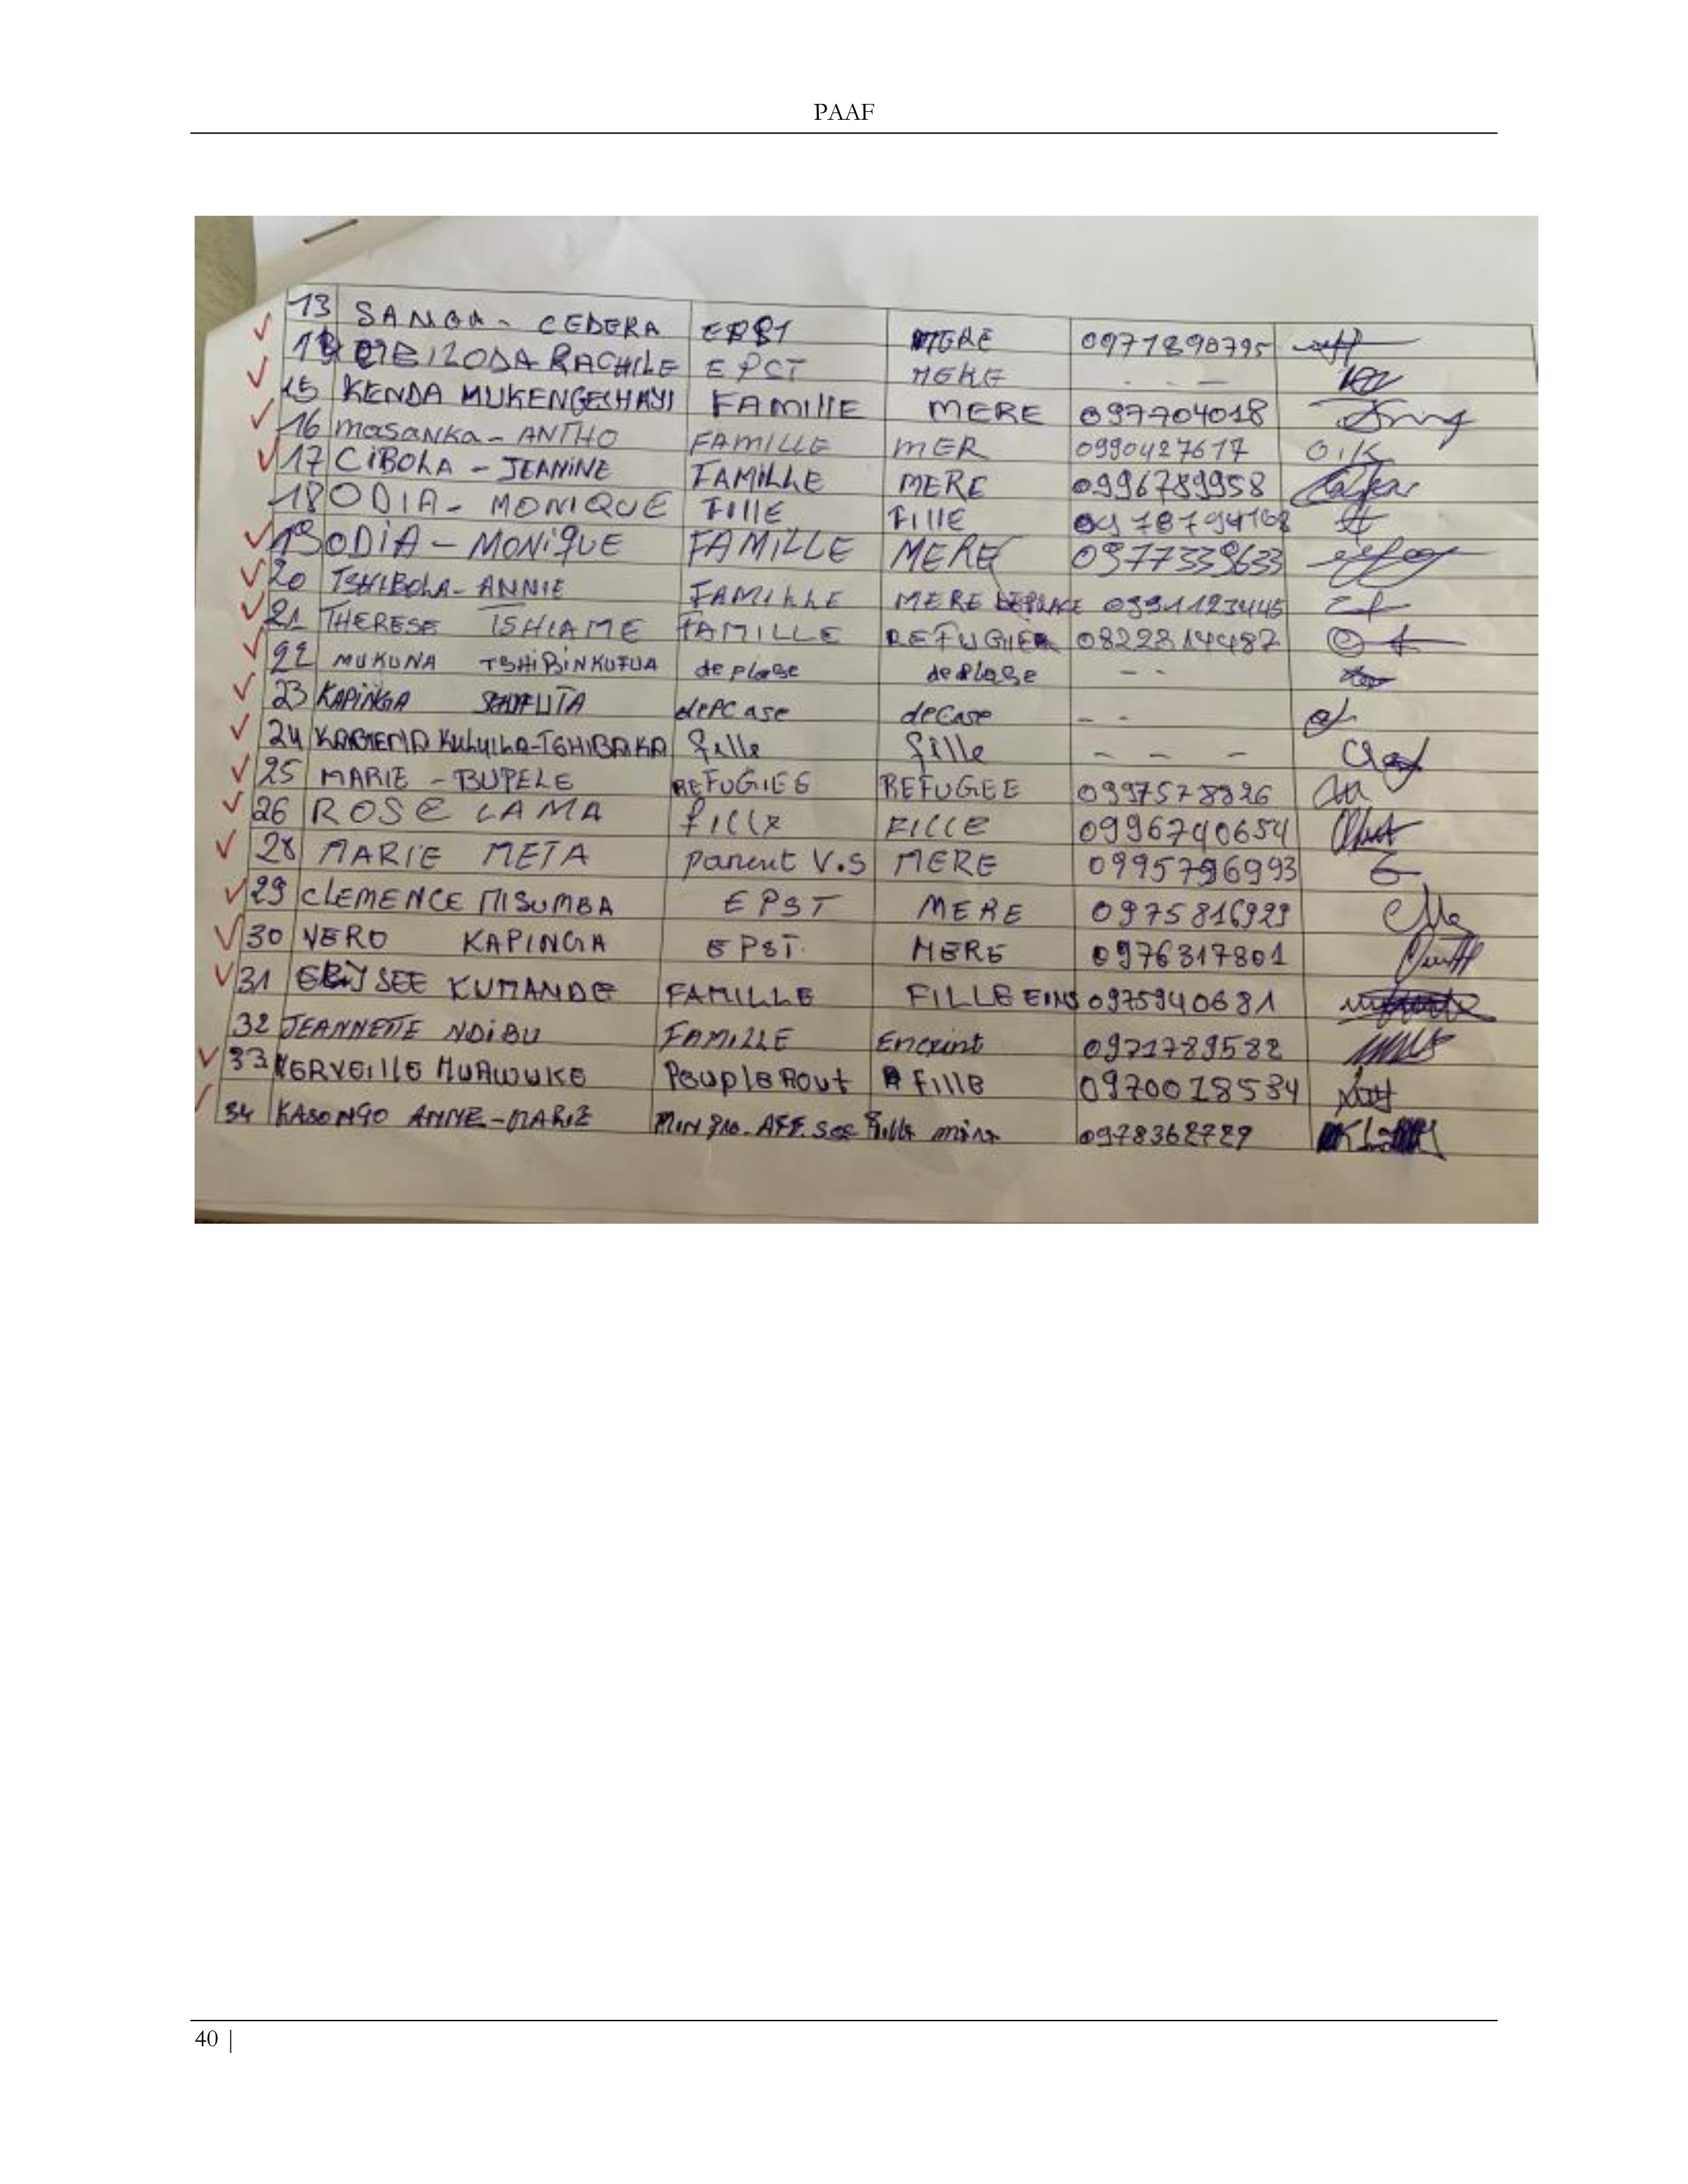 PAAF
13 SANGA - CEDERA MERE 0971890795
RACHILE EPCT MERE - - -
15 KENDA MUKENGESHAYI FAMIllE MERE 097704018
16 masanka - ANTHO FAMILLE MER 0990427617 OIK
17 CiBOLA - JEANiNE FAMILLE MERE 0996789958
18 ODIA - MONIQUE FIllE FIllE
19 ODiA - MONiQUE FAMILLE MERE 0977339633
20 TSHIBOLA - ANNIE FAMILLE MERE DEPLACE 0991123445
21 THERESE TSHIAME FAMILLE REFUGIER 0822814487
22 MUKUNA TSHIBINKUFUA deplase deplase - -
23 KAPINGA depcase decase - -
24 KABIENA KULUILA-TSHIBAKA fille fille - - -
25 MARIE - BUPELE REFUGIEE REFUGEE 0997578826
26 ROSE LAMA fille FILLE 0996740654
28 MARIE META parent V.S MERE 0995796993
29 CLEMENCE MISUMBA EPST MERE 0975816929
30 VERO KAPINGA EPST. MERE 0976317801
31 KUMANDE FAMILLE FILLE EINS 0975940681
32 JEANNETTE NDIBU FAMILLE Enceint 0971789582
33 MERVEILLE MUAWUKE Peuple Aout fille 0970018534
34 KASONGO ANNE-MARIE fille 0978362729
40 |